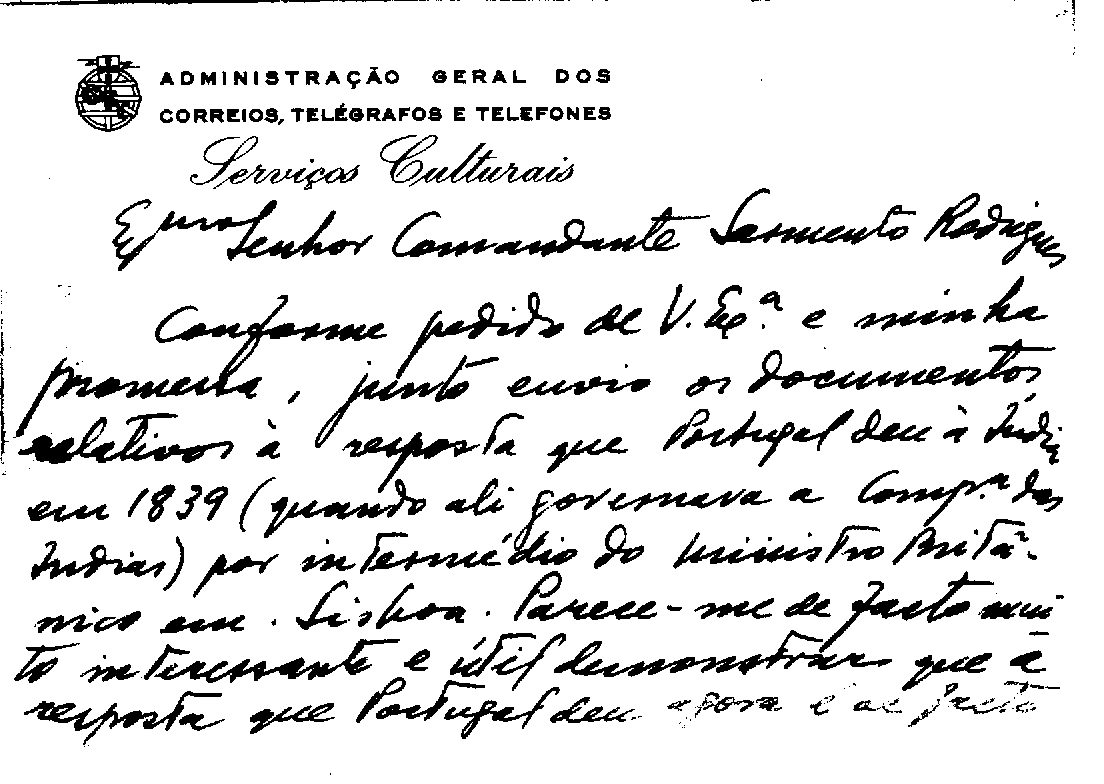 ADMINISTRAÇÃO GERAL DOS
CORREIOS, TELÉGRAFOS E TELEFONES
Serviços Culturais
Exmo Senhor Comandante Sarmento Rodrigues
Conforme pedido de V. Exª. e minha
promessa, junto envio os documentos
relativos à resposta que Portugal deu à Índia
em 1839 (quando ali governava a Comp.ª das
Indias) por intermédio do Ministro Britâ-
nico em Lisboa. Parece-me de facto mui
to interessante e útil demonstrar que a
resposta que Portugal deu agora é de facto